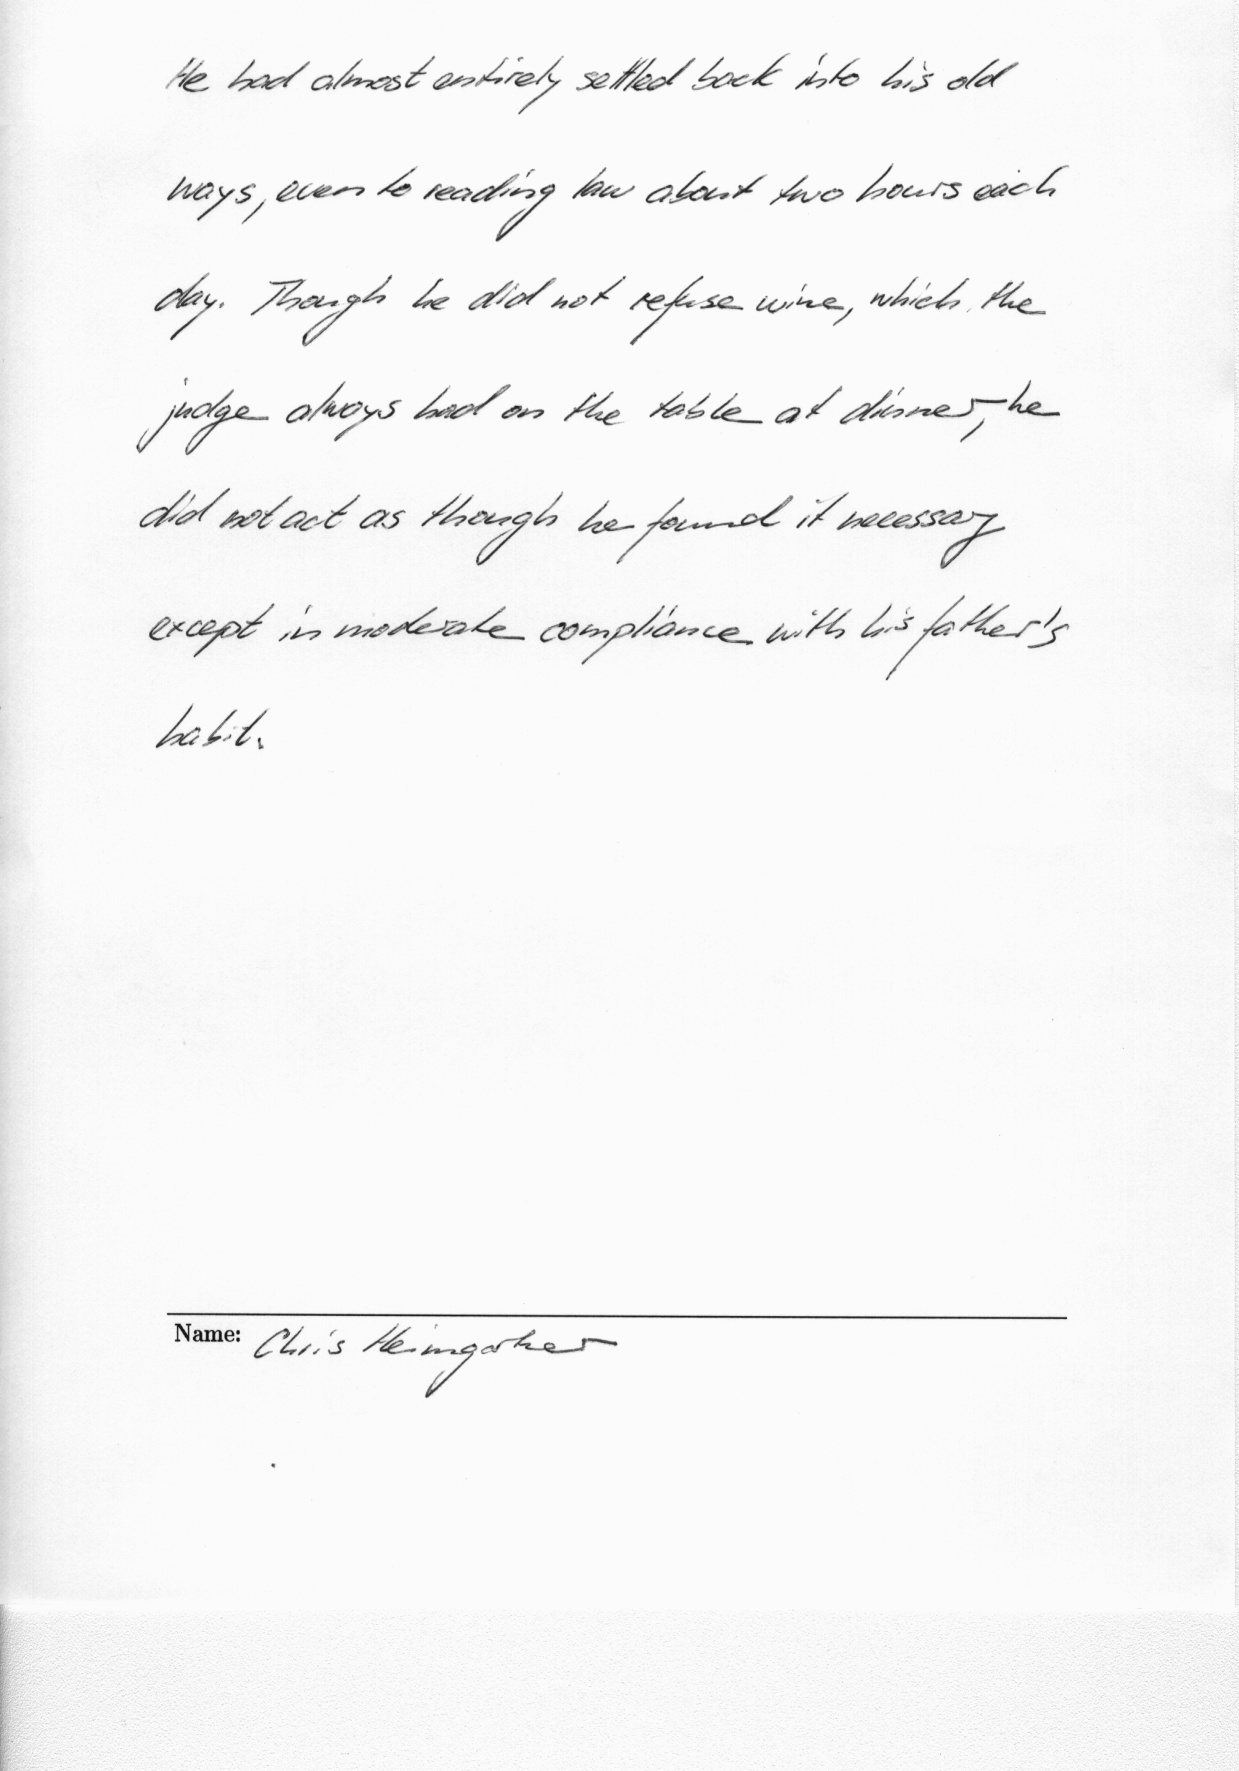 He had almost entirely settled back into his old
ways, even to reading law about two hours each
day. Though he did not refuse wine, which the
judge always had on the table at dinner, he
did not act as though he found it necessary
except in moderate compliance with his father's
habit.
Name: Chris Heimgartner